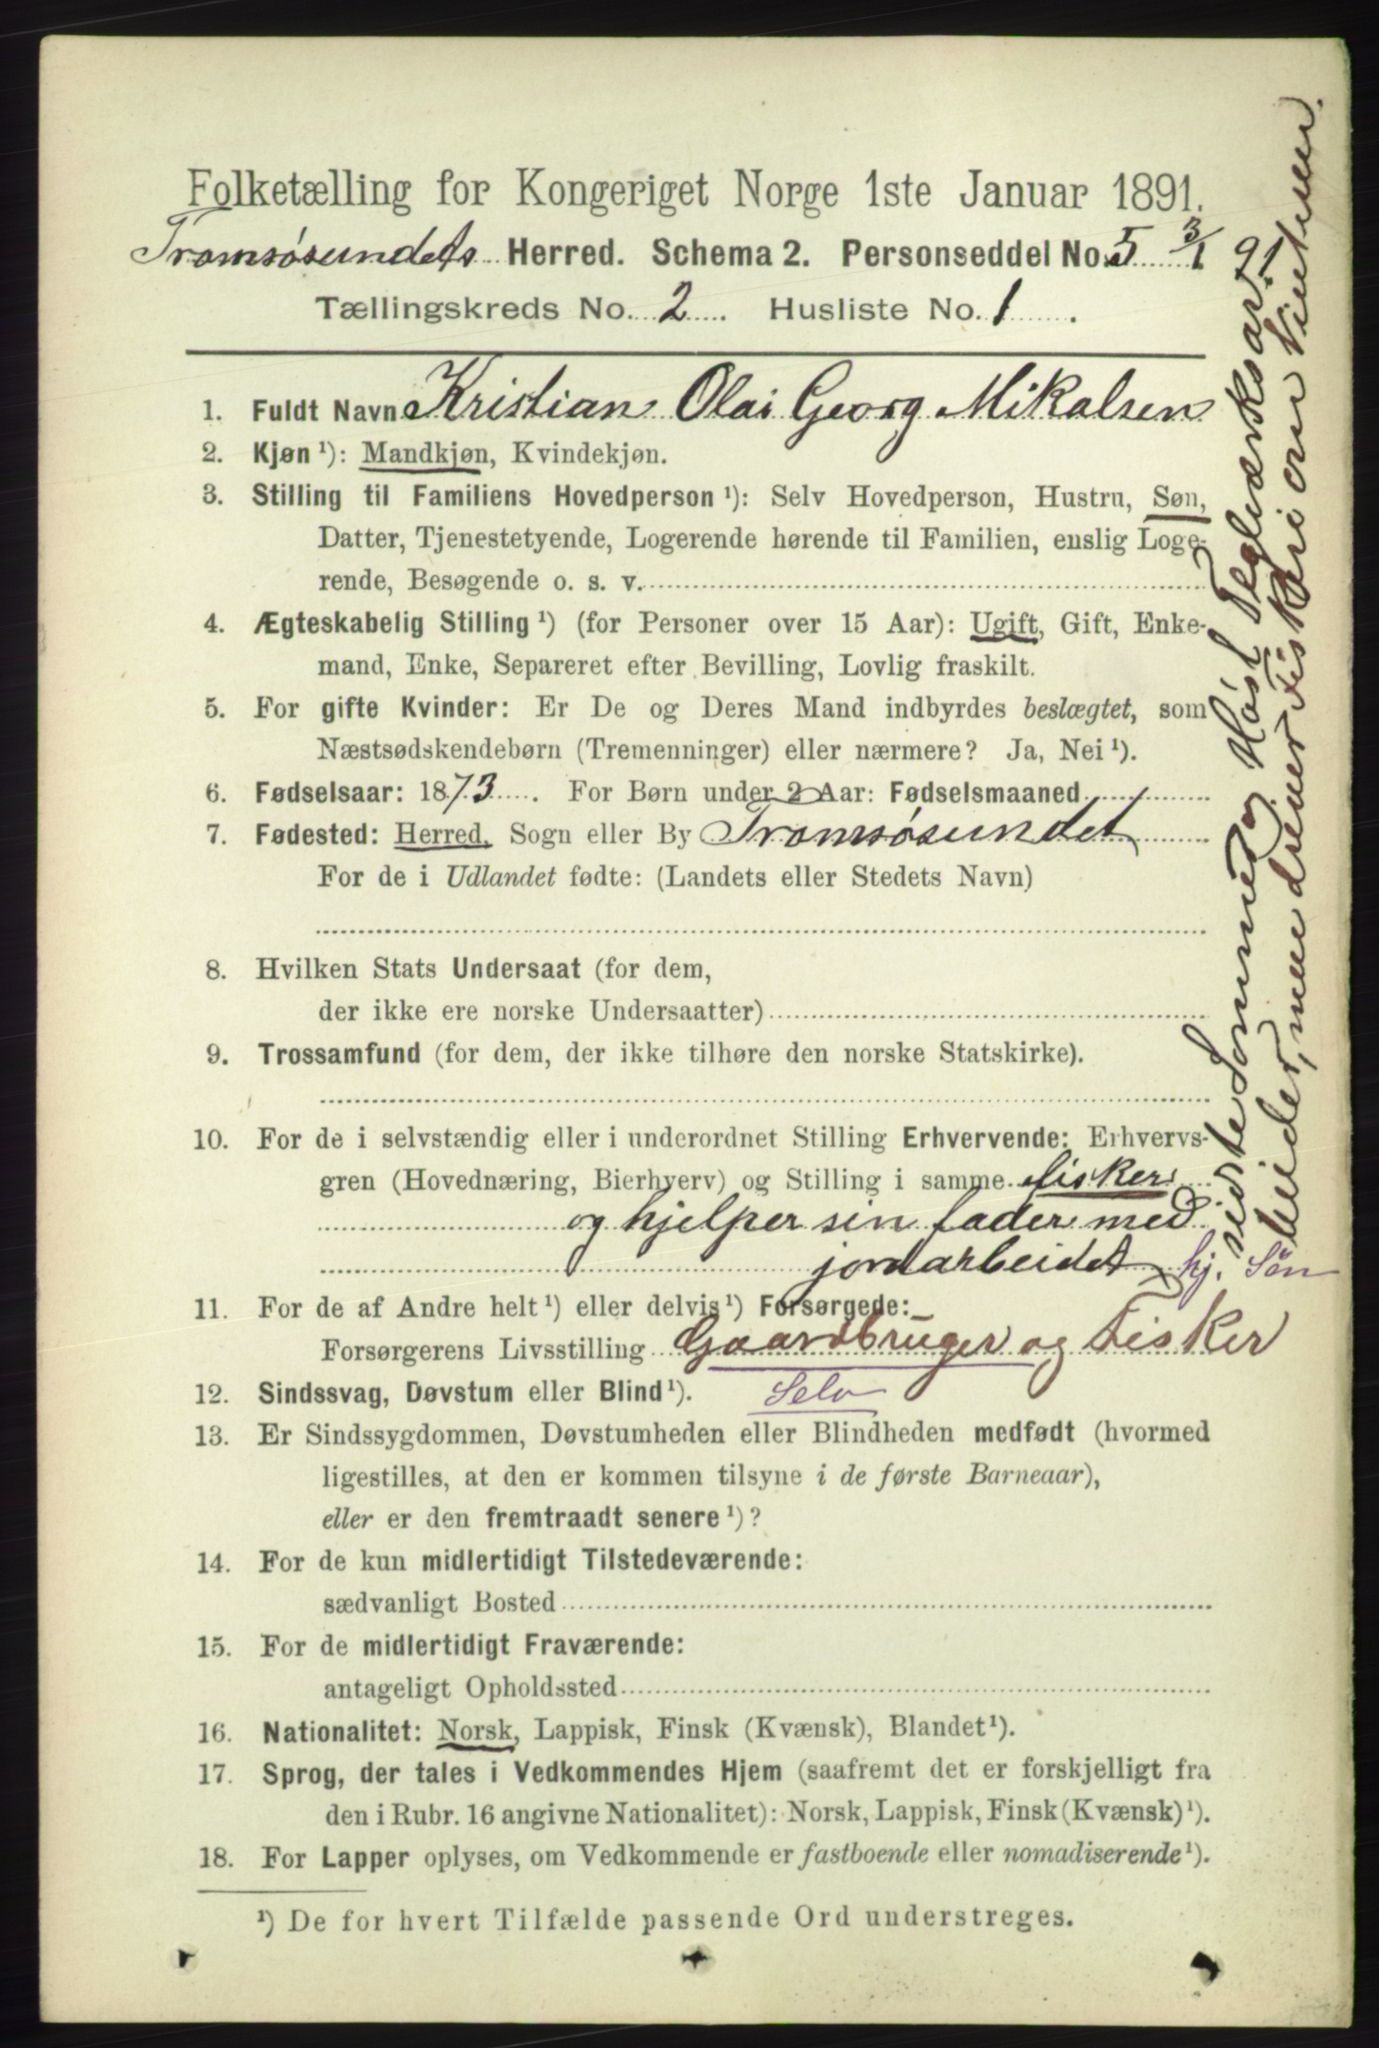 Folketælling for Kongeriget Norge 1ste Januar 1891.
Tromsøsundets Herred. Schema 2. Personseddel No. 5 3/1 91
Tællingskreds No. 2 Husliste No. 1
1. Fuldt Navn Kristian Olai Georg Mikalsen
2. Kjøn ¹): Mandkjøn, Kvindekjøn.
3. Stilling til Familiens Hovedperson ¹): Selv Hovedperson, Hustru, Søn,
Datter, Tjenestetyende, Logerende hørende til Familien, enslig Loge-
rende, Besøgende o. s. v.
4. Ægteskabelig Stilling ¹) (for Personer over 15 Aar): Ugift, Gift, Enke-
mand, Enke, Separeret efter Bevilling, Lovlig fraskilt.
5. For gifte Kvinder: Er De og Deres Mand indbyrdes beslægtet, som
Næstsødskendebørn (Tremenninger) eller nærmere? Ja, Nei ¹).
6. Fødselsaar: 1873. For Børn under 2 Aar: Fødselsmaaned
7. Fødested: Herred, Sogn eller By Tromsøsundet
For de i Udlandet fødte: (Landets eller Stedets Navn)
8. Hvilken Stats Undersaat (for dem,
der ikke ere norske Undersaatter)
9. Trossamfund (for dem, der ikke tilhøre den norske Statskirke).
10. For de i selvstændig eller i underordnet Stilling Erhvervende: Erhvervs-
gren (Hovednæring, Bierhverv) og Stilling i samme fisker
og hjelper sin fader med
jordarbeidet hj. Søn
11. For de af Andre helt ¹) eller delvis ¹) Forsørgede:
Forsørgerens Livsstilling Gaardbruger og Fisker
12. Sindssvag, Døvstum eller Blind ¹). Selv
13. Er Sindssygdommen, Døvstumheden eller Blindheden medfødt (hvormed
ligestilles, at den er kommen tilsyne i de første Barneaar),
eller er den fremtraadt senere ¹)?
14. For de kun midlertidigt Tilstedeværende:
sædvanligt Bosted
15. For de midlertidigt Fraværende:
antageligt Opholdssted
16. Nationalitet: Norsk, Lappisk, Finsk (Kvænsk), Blandet ¹).
17. Sprog, der tales i Vedkommendes Hjem (saafremt det er forskjelligt fra
den i Rubr. 16 angivne Nationalitet): Norsk, Lappisk, Finsk (Kvænsk) ¹).
18. For Lapper oplyses, om Vedkommende er fastboende eller nomadiserende ¹).
¹) De for hvert Tilfælde passende Ord understreges.
sidste Sommer og Høst Teglværksar-
beider, men driver Fiskeri om Vinteren.